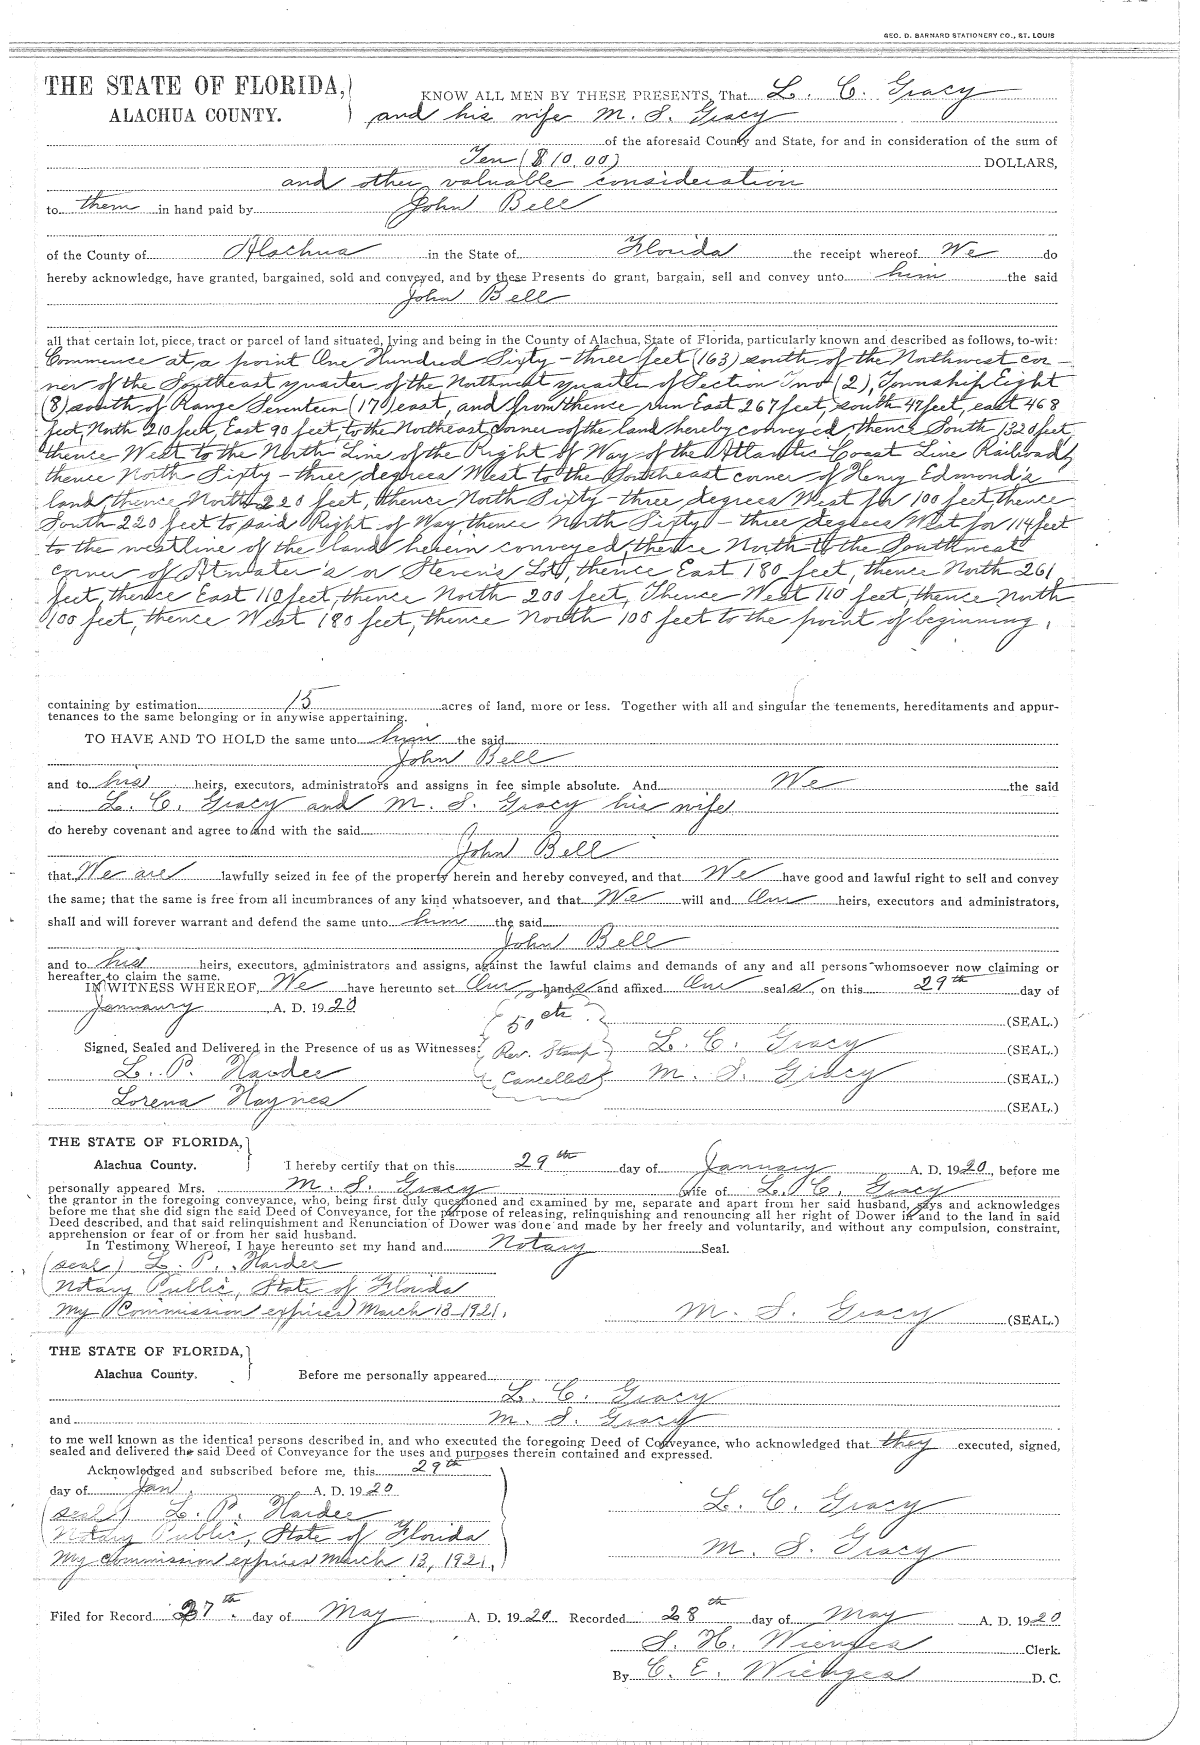 GEO. D. BARNARD STATIONERY CO., ST. LOUIS
THE STATE OF FLORIDA,
ALACHUA COUNTY.
KNOW ALL MEN BY THESE PRESENTS, That L. C. Gracy
and his wife M. S. Gracy
of the aforesaid County and State, for and in consideration of the sum of
Ten ($10.00) DOLLARS,
and other valuable consideration
to them in hand paid by John Bell
of the County of Alachua in the State of Florida the receipt whereof We do
hereby acknowledge, have granted, bargained, sold and conveyed, and by these Presents do grant, bargain, sell and convey unto him the said
John Bell
all that certain lot, piece, tract or parcel of land situated, lying and being in the County of Alachua, State of Florida, particularly known and described as follows, to-wit:
Commence at a point One Hundred Sixty-three feet (163) south of the Northwest cor-
ner of the Southeast quarter of the Northwest quarter of Section Two (2), Township Eight
(8) south of Range Seventeen (17) east, and from thence run East 267 feet, south 47 feet, east 468
feet, North 210 feet, East 90 feet to the Northeast corner of the land hereby conveyed, thence South 1320 feet,
thence West to the North Line of the Right of Way of the Atlantic Coast Line Railroad,
thence North Sixty-three degrees West to the Southeast corner of Henry Edmond's
land, thence North 220 feet, thence North Sixty-three degrees West for 100 feet, thence
South 220 feet to said Right of Way thence North Sixty-three degrees West for 114 feet
to the westline of the land herein conveyed, thence North to the Southwest
corner of Atwater's or Steven's Lot, thence East 180 feet, thence North 261
feet, thence East 110 feet, thence North 200 feet, Thence West 110 feet, thence North
100 feet, thence West 180 feet, thence North 100 feet to the point of beginning.
containing by estimation 15 acres of land, more or less. Together with all and singular the tenements, hereditaments and appur-
tenances to the same belonging or in anywise appertaining.
TO HAVE AND TO HOLD the same unto him the said
John Bell
and to his heirs, executors, administrators and assigns in fee simple absolute. And We the said
L. C. Gracy and M. S. Gracy his wife
do hereby covenant and agree to and with the said
John Bell
that We are lawfully seized in fee of the property herein and hereby conveyed, and that We have good and lawful right to sell and convey
the same; that the same is free from all incumbrances of any kind whatsoever, and that We will and Our heirs, executors and administrators,
shall and will forever warrant and defend the same unto him the said
John Bell
and to his heirs, executors, administrators and assigns, against the lawful claims and demands of any and all persons whomsoever now claiming or
hereafter to claim the same.
IN WITNESS WHEREOF, We have hereunto set Our hands and affixed Our seals, on this 29th day of
January A. D. 1920
(SEAL.)
50 cts
Rev. Stamp
Cancelled
Signed, Sealed and Delivered in the Presence of us as Witnesses: L. C. Gracy (SEAL.)
L. P. Hardee M. S. Gracy (SEAL.)
Lorena Haynes (SEAL.)
THE STATE OF FLORIDA,
Alachua County. I hereby certify that on this 29th day of January A. D. 1920, before me
personally appeared Mrs. M. S. Gracy wife of L. C. Gracy
the grantor in the foregoing conveyance, who, being first duly questioned and examined by me, separate and apart from her said husband, says and acknowledges
before me that she did sign the said Deed of Conveyance, for the purpose of releasing, relinquishing and renouncing all her right of Dower in and to the land in said
Deed described, and that said relinquishment and Renunciation of Dower was done and made by her freely and voluntarily, and without any compulsion, constraint,
apprehension or fear of or from her said husband.
In Testimony Whereof, I have hereunto set my hand and Notary Seal.
(seal) L. P. Hardee
Notary Public, State of Florida
My Commission expires March 13-1921.
M. S. Gracy (SEAL.)
THE STATE OF FLORIDA,
Alachua County. Before me personally appeared
L. C. Gracy
and M. S. Gracy
to me well known as the identical persons described in, and who executed the foregoing Deed of Conveyance, who acknowledged that they executed, signed,
sealed and delivered the said Deed of Conveyance for the uses and purposes therein contained and expressed.
Acknowledged and subscribed before me, this 29th
day of Jan. A. D. 1920
(seal) L. P. Hardee L. C. Gracy
Notary Public, State of Florida
My commission expires March 13, 1921. M. S. Gracy
Filed for Record 27th day of May A. D. 1920 Recorded 28th day of May A. D. 1920
S. H. Wienges Clerk.
By C. E. Wienges D. C.